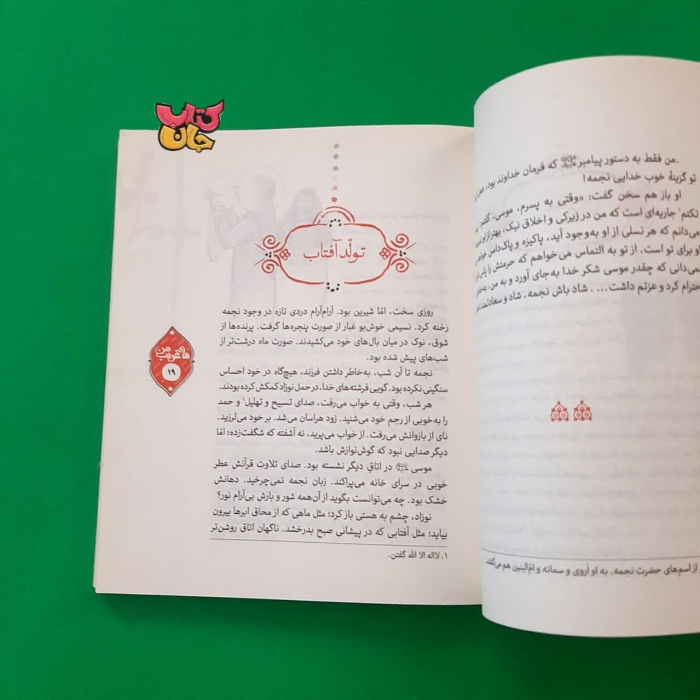 .من فقط به دستور پیامبر ﷺ که فرمان خداوند بود، عمل
تو گزینهٔ خوب خدایی نجمه!
او باز هم سخن گفت: «وقتی به پسرم، موسی، گفتم
تکتم جاریه‌ای است که من در زیرکی و اخلاق نیک، بهتر از او
می‌دانم که هر نسلی از او به‌وجود آید، پاکیزه و پاک‌دامن
او برای تو است. از تو به التماس می‌خواهم که حرمتش را پاس
می‌دانی که چقدر موسی شکر خدا به‌جای آورد و به من، به
احترام کرد و عزتم داشت.... شاد باش نجمه، شاد و سعادتمند
از اسم‌های حضرت نجمه. به او أروی و سمانه و ام‌البنین هم می‌گفتند.
کتاب
جان
تولّد آفتاب
روزی سخت، امّا شیرین بود. آرام‌آرام دردی تازه در وجود نجمه
رخنه کرد. نسیمی خوش‌بو غبار از صورت پنجره‌ها گرفت. پرنده‌ها از
شوق، نوک در میان بال‌های خود می‌کشیدند. صورت ماه درشت‌تر از
شب‌های پیش شده بود.
نجمه تا آن شب، به‌خاطر داشتن فرزند، هیچ‌گاه در خود احساس
سنگینی نکرده بود. گویی فرشته‌های خدا، در حمل نوزاد کمکش کرده بودند.
هر شب، وقتی به خواب می‌رفت، صدای تسبیح و تهلیل۱ و حمد
را به‌خوبی از رحم خود می‌شنید. زود هراسان می‌شد. بر خود می‌لرزید.
نای از بازوانش می‌رفت. از خواب می‌پرید، نه آشفته که شگفت‌زده؛ امّا
دیگر صدایی نبود که گوش‌نوازش باشد.
موسی در اتاق دیگر نشسته بود. صدای تلاوت قرآنش عطر
خوبی در سرای خانه می‌پراکند. زبان نجمه نمی‌چرخید. دهانش
خشک بود. چه می‌توانست بگوید از آن‌همه شور و بارش بی‌آرام نور؟
نوزاد، چشم به هستی باز کرد؛ مثل ماهی که از محاق ابرها بیرون
بیاید؛ مثل آفتابی که در پیشانی صبح بدرخشد. ناگهان اتاق روشن‌تر
۱. لااله الا الله گفتن.
ماه غریب من
۱۹